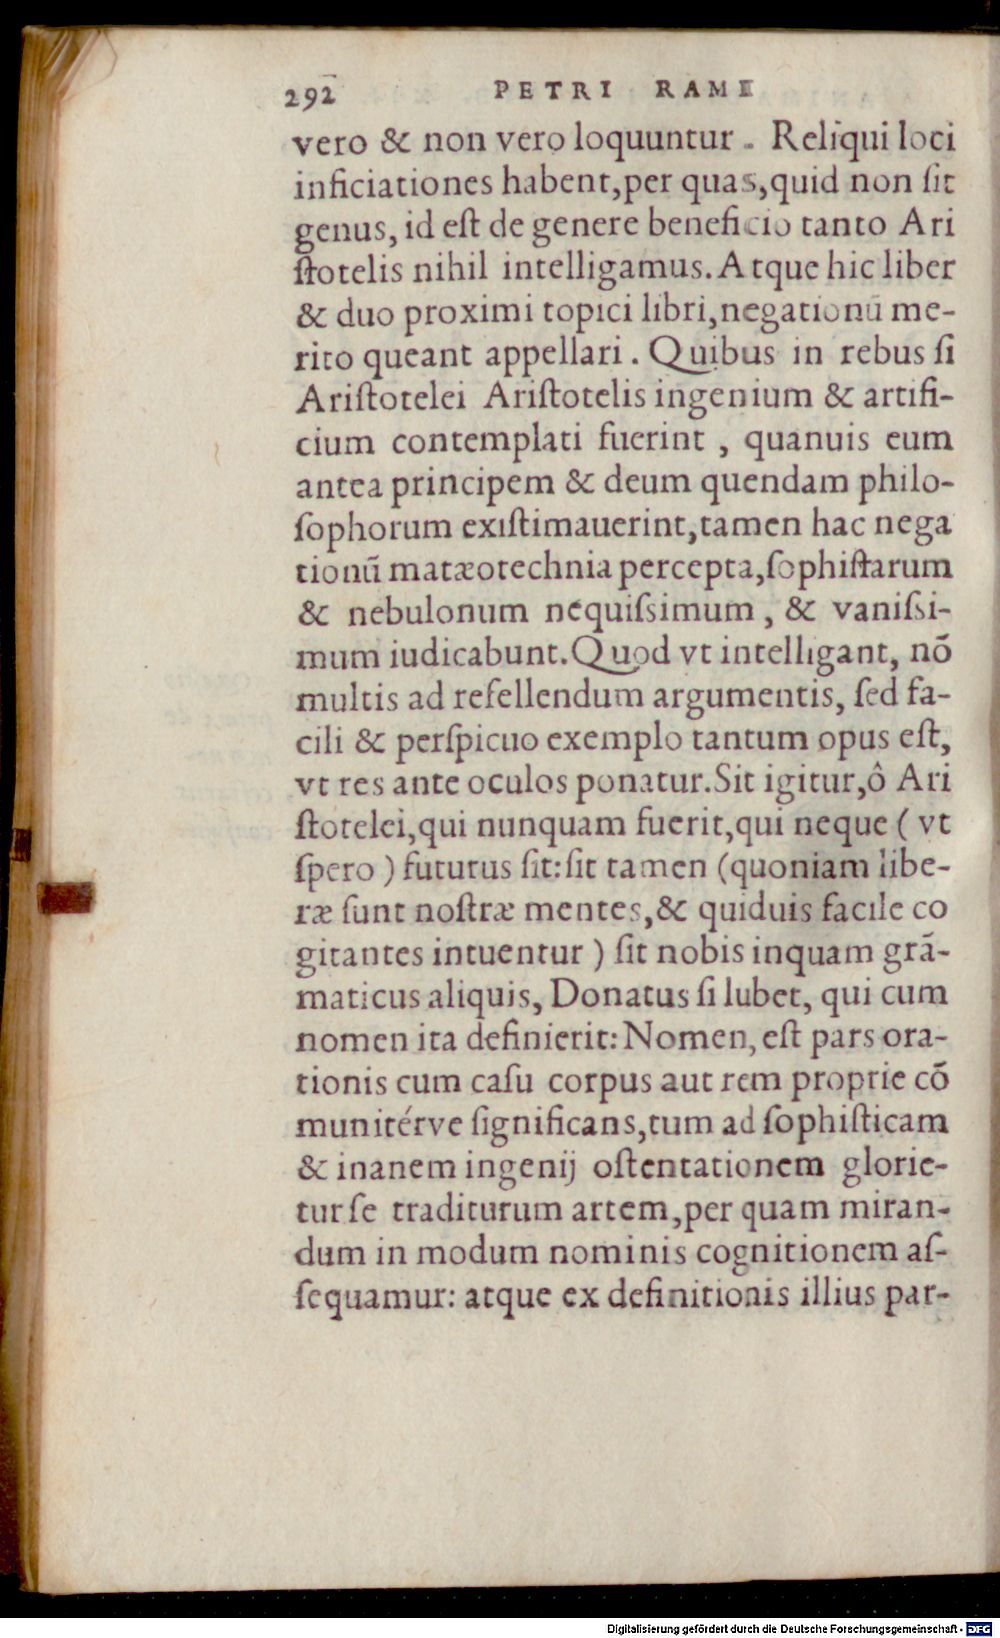 292 PETRI RAMI
vero & non vero loquuntur. Reliqui loci
inficiationes habent,per quas,quid non ſit
genus, id eſt de genere beneficio tanto Ari
ſtotelis nihil intelligamus. Atque hic liber
& duo proximi topici libri,negationū me-
rito queant appellari. Quibus in rebus ſi
Ariſtotelei Ariſtotelis ingenium & artifi-
cium contemplati fuerint, quanuis eum
antea principem & deum quendam philo-
ſophorum exiſtimauerint,tamen hac nega
tionū matæotechnia percepta,ſophiſtarum
& nebulonum nequiſsimum, & vaniſsi-
mum iudicabunt. Quod vt intelligant, nō
multis ad refellendum argumentis, ſed fa-
cili & perſpicuo exemplo tantum opus eſt,
vt res ante oculos ponatur. Sit igitur,ô Ari
ſtotelei,qui nunquam fuerit,qui neque (vt
ſpero) futurus ſit: ſit tamen (quoniam libe-
ræ ſunt noſtræ mentes,& quiduis facile co
gitantes intuentur) ſit nobis inquam grā-
maticus aliquis, Donatus ſi lubet, qui cum
nomen ita definierit: Nomen, eſt pars ora-
tionis cum caſu corpus aut rem proprie cō
munitérve ſignificans,tum ad ſophiſticam
& inanem ingenij oſtentationem glorie-
tur ſe traditurum artem,per quam miran-
dum in modum nominis cognitionem aſ-
ſequamur: atque ex definitionis illius par-
Digitalisierung gefördert durch die Deutsche Forschungsgemeinschaft - DFG